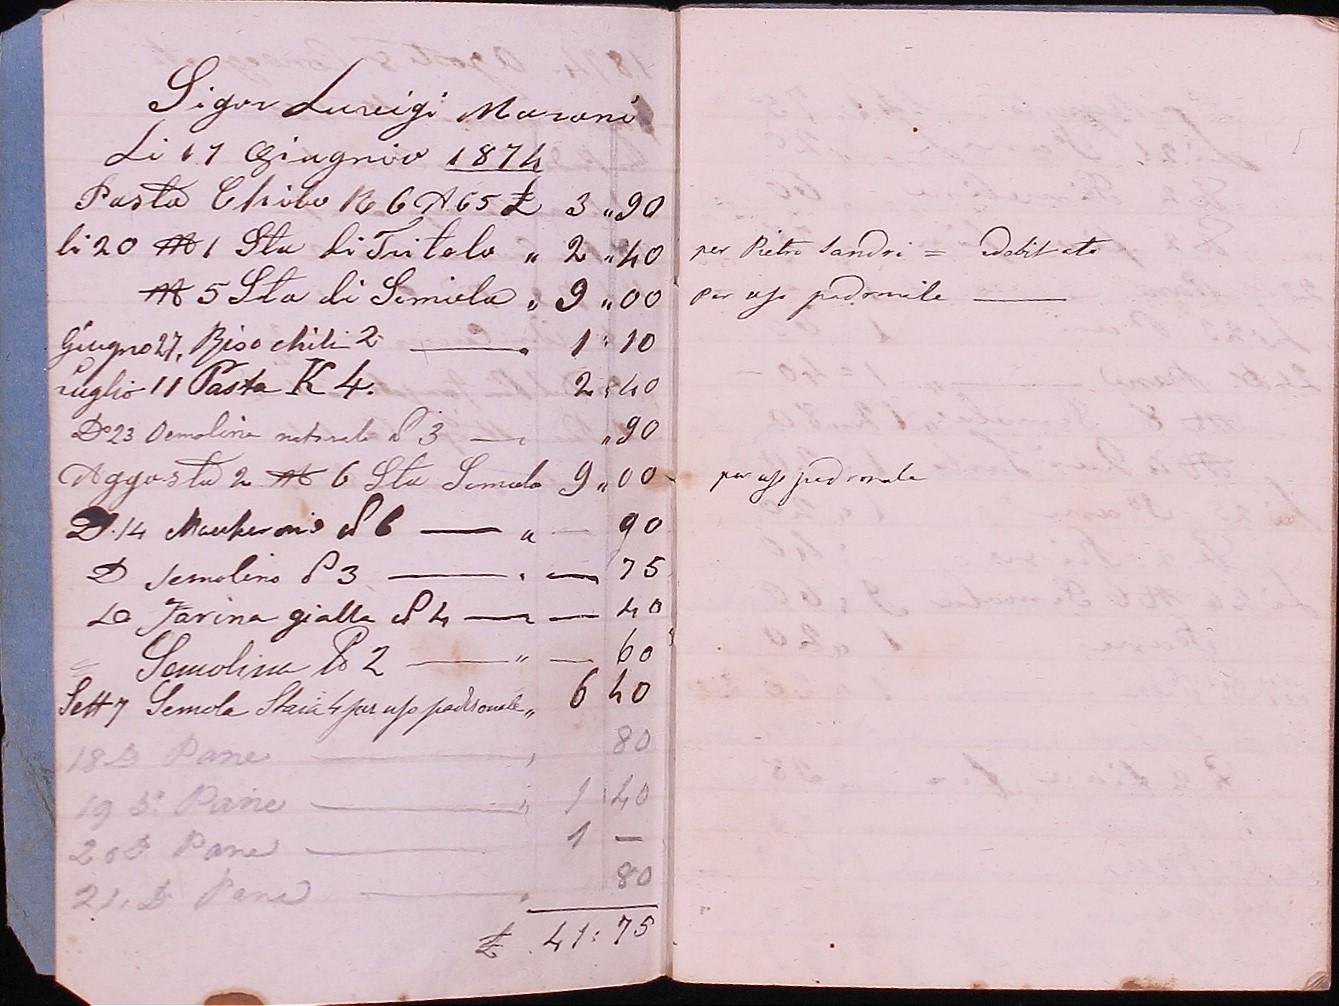 Sigor Luigi Marani
Li 17 Giugnio 1874
Pasta Chilo K 6 A 65 £ 3 „ 90
li 20 N 1 Sta di Tritelo „ 2 „ 40
N 5 Sta di Semiela „ 9 „ 00
Giugno 27, Riso chili 2 1 : 10
Luglio 11 Pasta K 4. 2 : 40
Do 23 Semolina naturale P 3 „ 90
Aggosto 2 N 6 Sta Semola 9 „ 00
D. 14 Maccheroni P 6 „ 90
D Semolino P 3 75
D Farina gialla P 4 40
Semolina P 2 „ 60
Sett 7 Semola Staia 4 per uso padronale „ 6 40
18 D Pane 80
19 D: Pane „ 1 : 40
20 D Pane 1 —
21. D Pane 80
£ 41 : 75
per Pietro Sandri = debitato
per uso padronale
per uso padronale